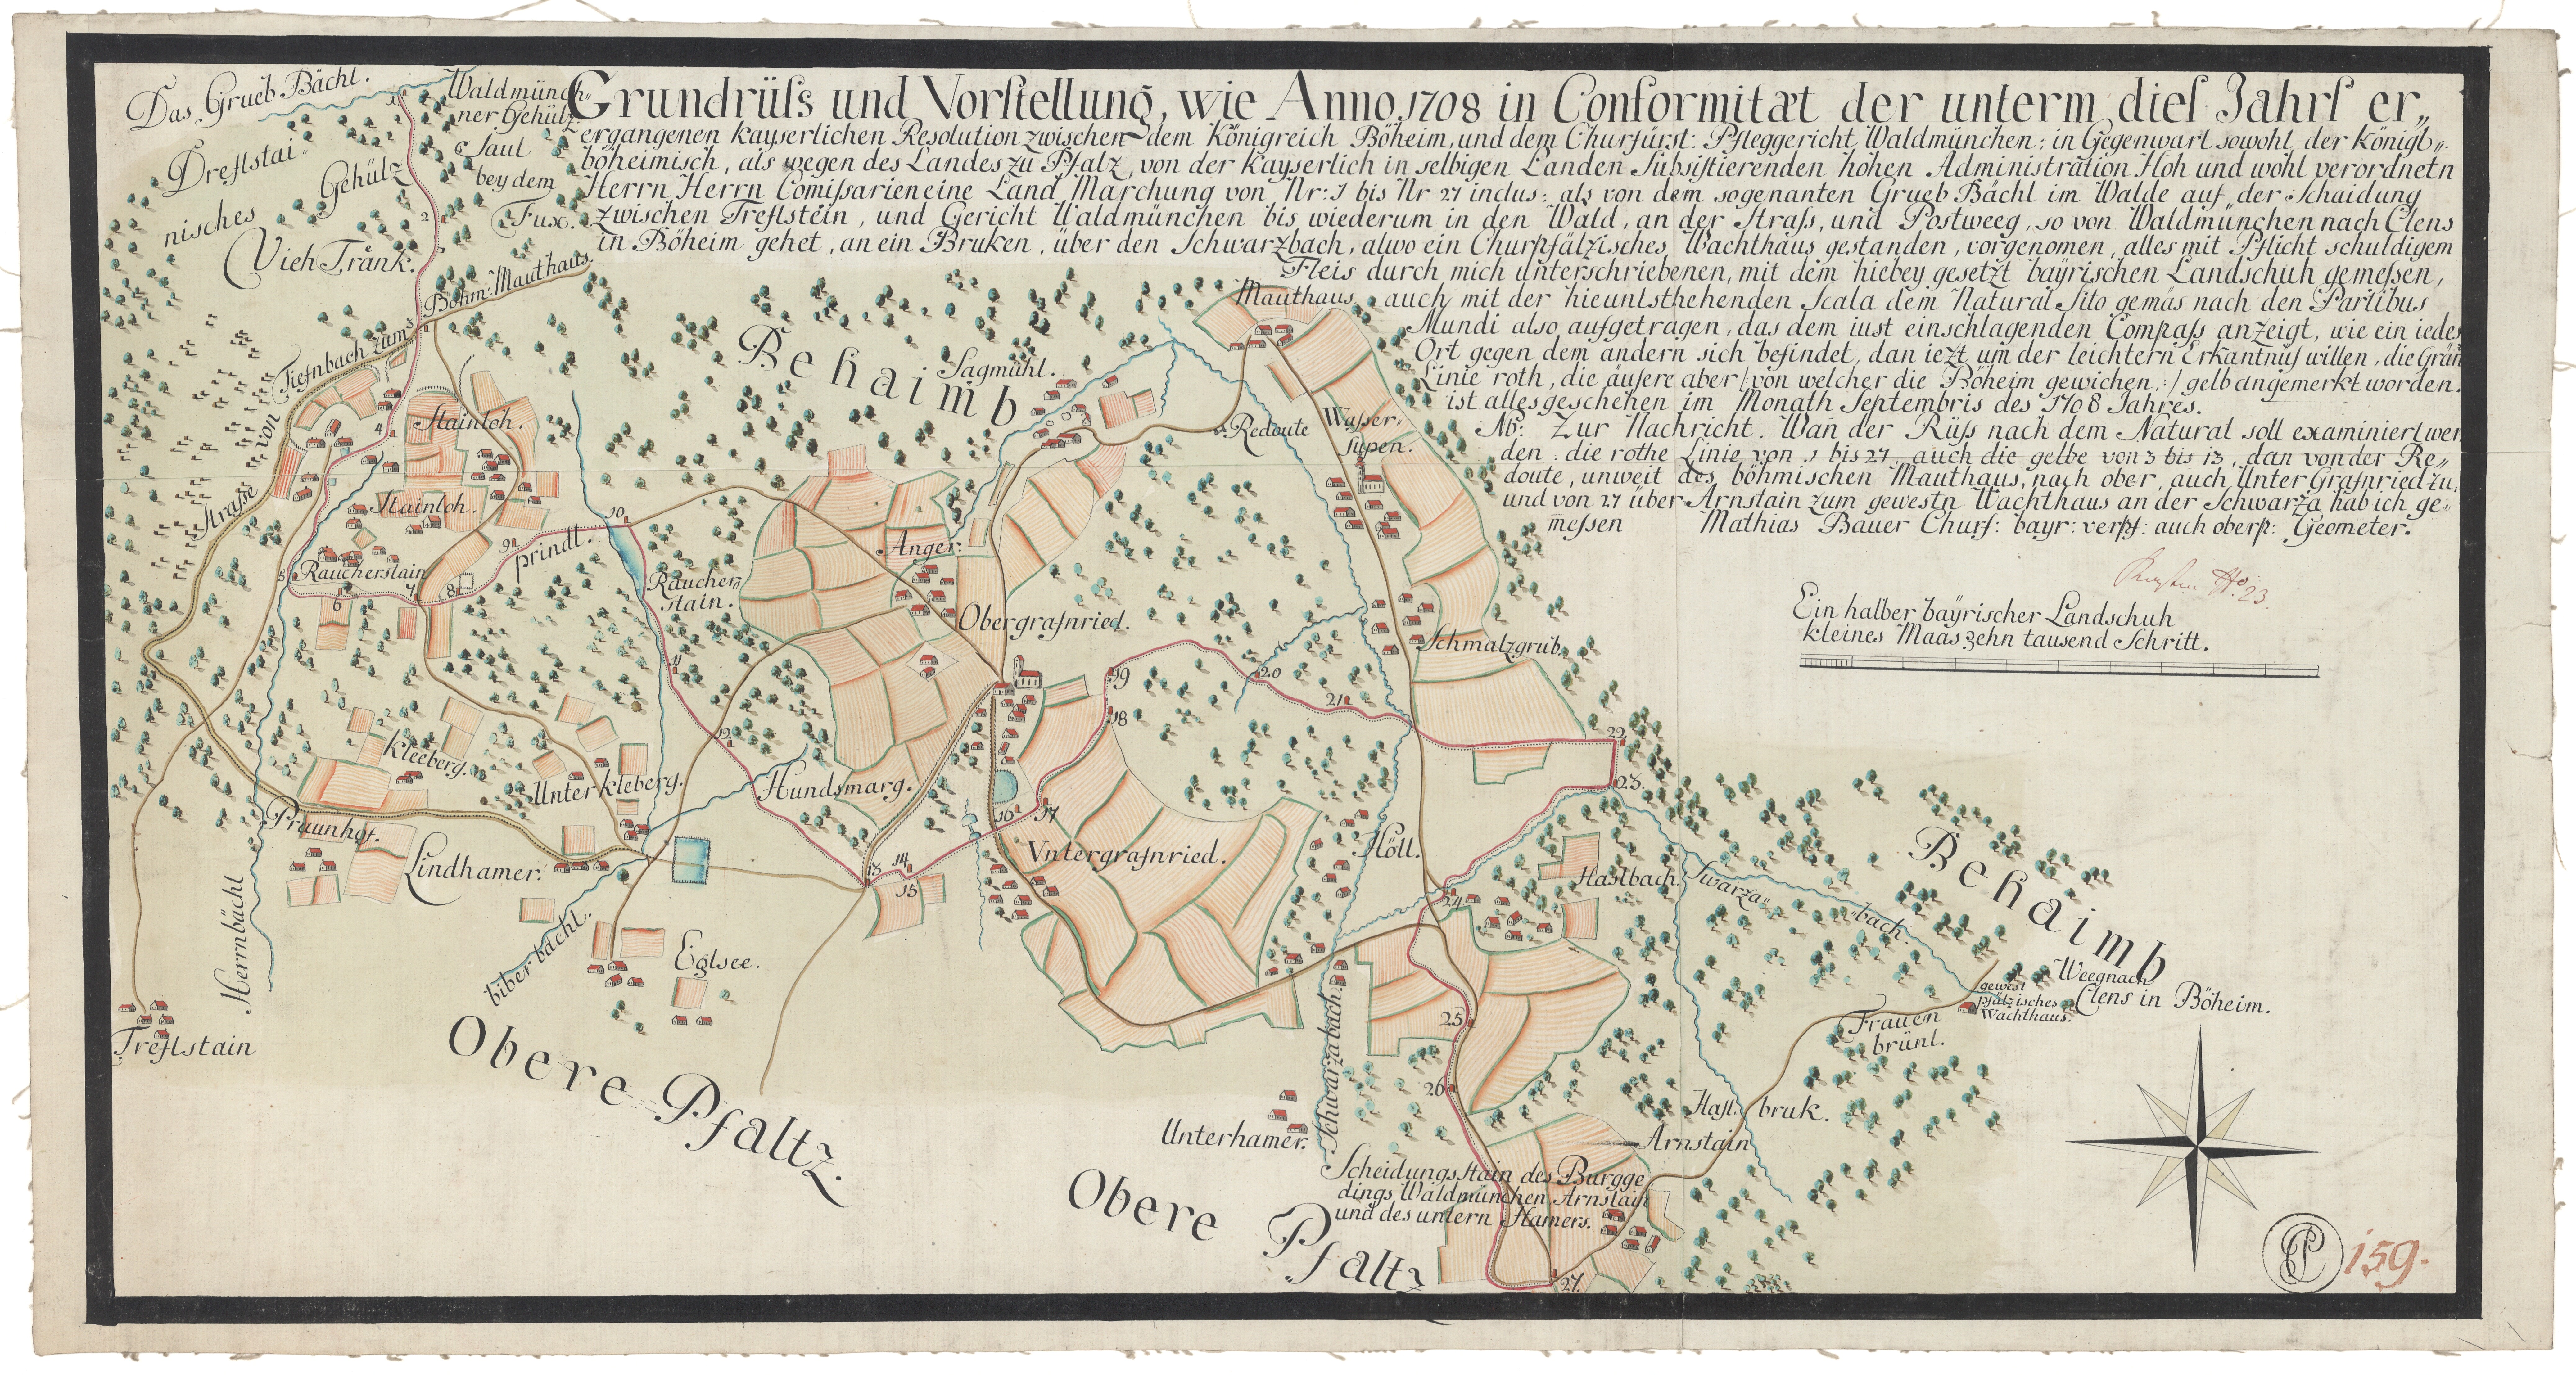 Grundrüss und Vorstellung, wie Anno 1708 in Conformitæt der unterm dies Jahrs er„
ergangenen kayserlichen Resolution zwischen dem Königreich Böheim, und dem Churfürst: Pfleggericht Waldmünchen: in Gegenwart sowohl der Königl„
böheimisch, als wegen des Landes zu Pfalz, von der kayserlich in selbigen Landen Subsistierenden hohen Administration Hoh und wohl verordnetn
Herrn Herrn Comissarien eine Land Marchung von Nr: 1 bis Nr 27 inclus: als von dem sogenanten Grueb Bächl im Walde auf der Schaidung
zwischen Treflstein, und Gericht Waldmünchen bis wiederum in den Wald, an der Strass, und Postweeg, so von Waldmünchen nach Clens
in Böheim gehet, an ein Bruken, über den Schwarzbach, alwo ein Churpfälzisches Wachthäus gestanden, vorgenomen, alles mit Pflicht schuldigem
Fleis durch mich unterschriebenen, mit dem hiebey gesetzt bayrischen Landschuh gemessen,
auch mit der hieuntsthehenden Scala dem Natural Sito gemäs nach den Partibus
Mundi also aufgetragen, das dem iust einschlagenden Compass anzeigt, wie ein iedes
Ort gegen dem andern sich befindet, dan iezt um der leichtern Erkantnus willen, die Grän
Linie roth, die äusere aber /: von welcher die Böheim gewichen, :/ gelb angemerkt worden.
ist alles geschehen im Monath Septembris des 1708 Jahres.
Nb: Zur Nachricht. Wan der Rüss nach dem Natural soll examiniert wer
den: die rothe Linie von 1 bis 27, auch die gelbe von 3 bis 13, dan von der Re„
doute, unweit des böhmischen Mauthaus, nach ober, auch Unter Grasnried zu,
und von 27 über Arnstain zum gewestn Wachthaus an der Schwarza hab ich ge„
messen Mathias Bauer Churf: bayr: verpf: auch oberp: Geometer.
Ein halber bayrischer Landschuh
kleines Maas zehn tausend Schritt.
Das Grueb Bächl.
Waldmünch„
ner Gehülz
Saul
bey dem
Fux.
Dreflstai
nisches
Gehülz
Vieh Tränk.
Böhm: Mauthaus.
Strasse von Tiefnbach zum
Behaimb
Sagmühl.
Mauthaus
Redoute
Wasser„
supen.
Stainloh.
Stainloh.
Raucherstain
prindl.
Raucher„
stain.
Anger.
Obergrasnried.
Schmalzgrub.
Kleeberg.
Unter kleberg.
Hundsmarg.
Praunhof.
Lindhamer.
Untergrasnried.
Höll.
Haslbach.
Swarza„
bach.
Behaimb
Herrnbächl
biberbachl.
Eglsee.
Treflstain
Obere Pfaltz.
Schwarzabach.
Unterhamer.
Obere Pfaltz
Weegnach
Clens in Böheim.
gewest
pfälzisches
Wachthaus.
Frauen
brünl.
Hasl bruk.
Arnstain
Scheidungs Stain des Burgge
dings Waldmünchen Arnstain
und des untern Hamers.
1
2
3
4
5
6
7
8
9
10
11
12
13
14
15
16
17
18
19
20
21
22
23.
24
25
26
27.
159.